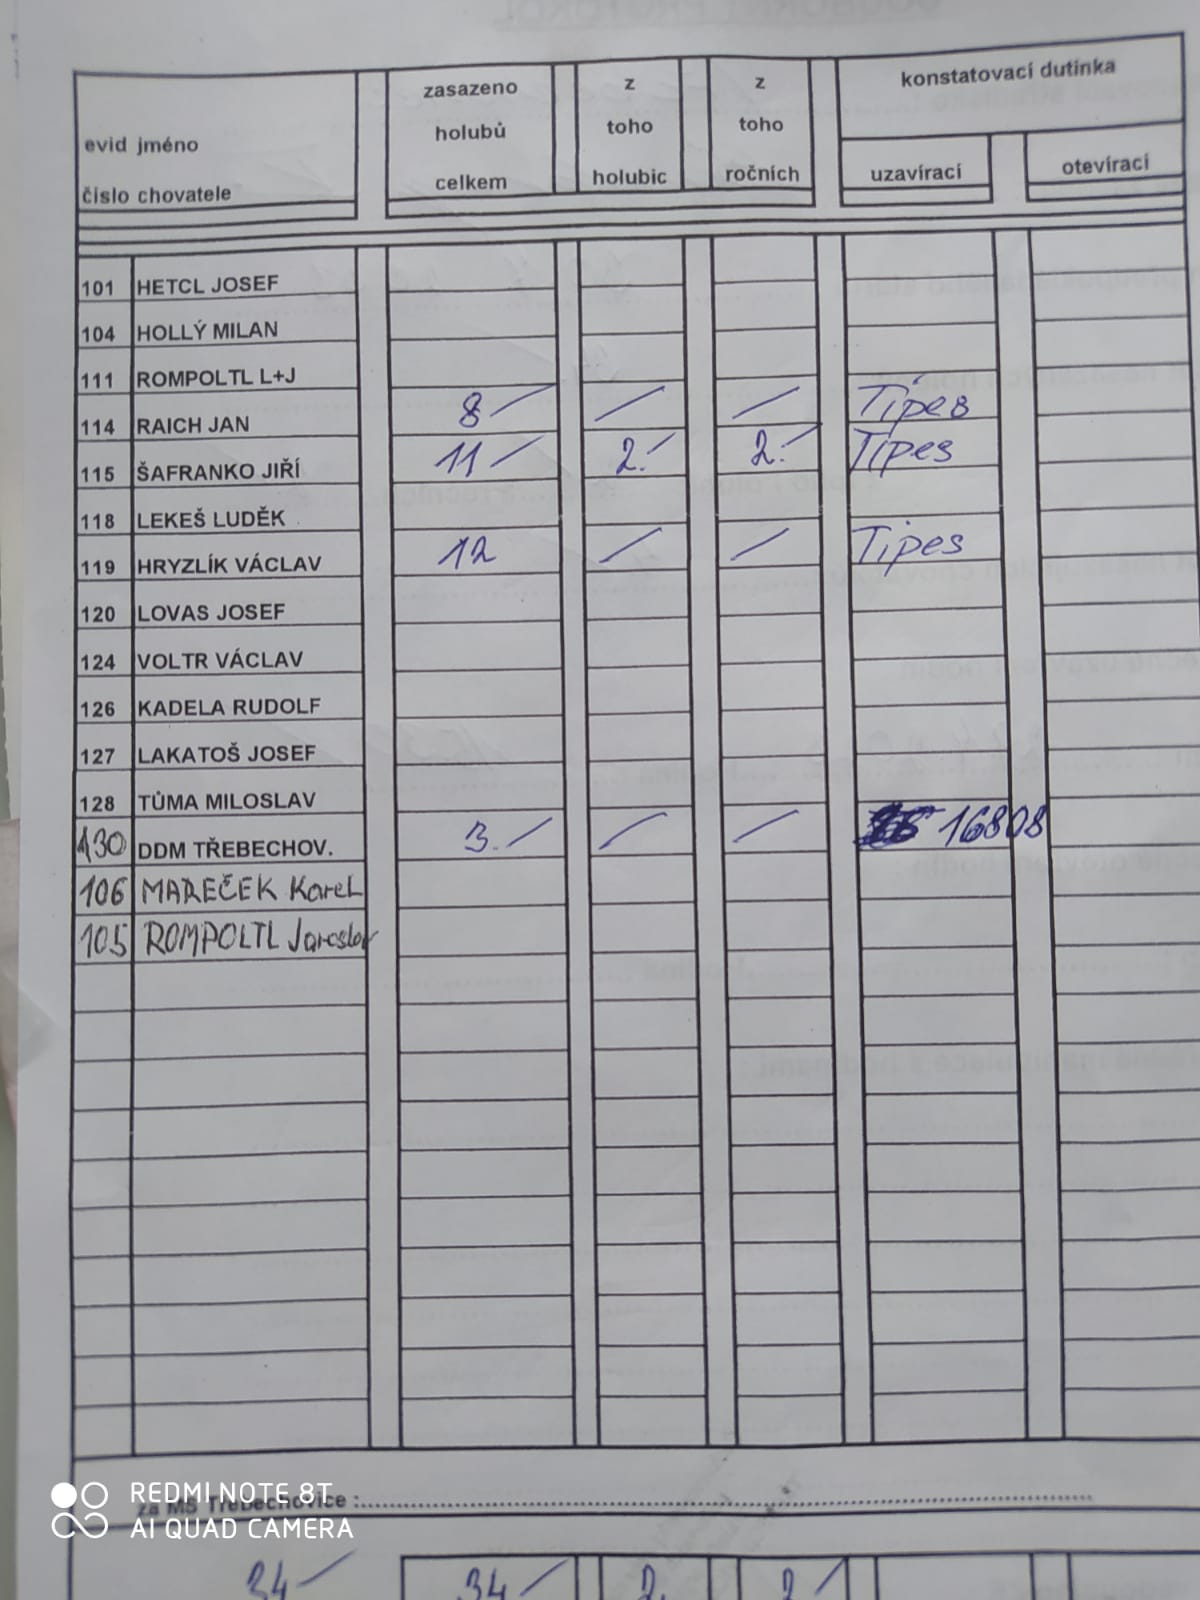 evid jméno
číslo chovatele
zasazeno
holubů
celkem
z
toho
holubic
z
toho
ročních
konstatovací dutinka
uzavírací
otevírací
101 HETCL JOSEF
104 HOLLÝ MILAN
111 ROMPOLTL L+J
114 RAICH JAN 8 / / / Tipes
115 ŠAFRANKO JIŘÍ 11 / 2.- 2.- Tipes
118 LEKEŠ LUDĚK
119 HRYZLÍK VÁCLAV 12 / / Tipes
120 LOVAS JOSEF
124 VOLTR VÁCLAV
126 KADELA RUDOLF
127 LAKATOŠ JOSEF
128 TŮMA MILOSLAV
130 DDM TŘEBECHOV. 3.- / / 16808
106 MAREČEK Karel
105 ROMPOLTL Jaroslav
za MS Třebechovice :
REDMI NOTE 8T
AI QUAD CAMERA
34 / 34 / 2. 2 /